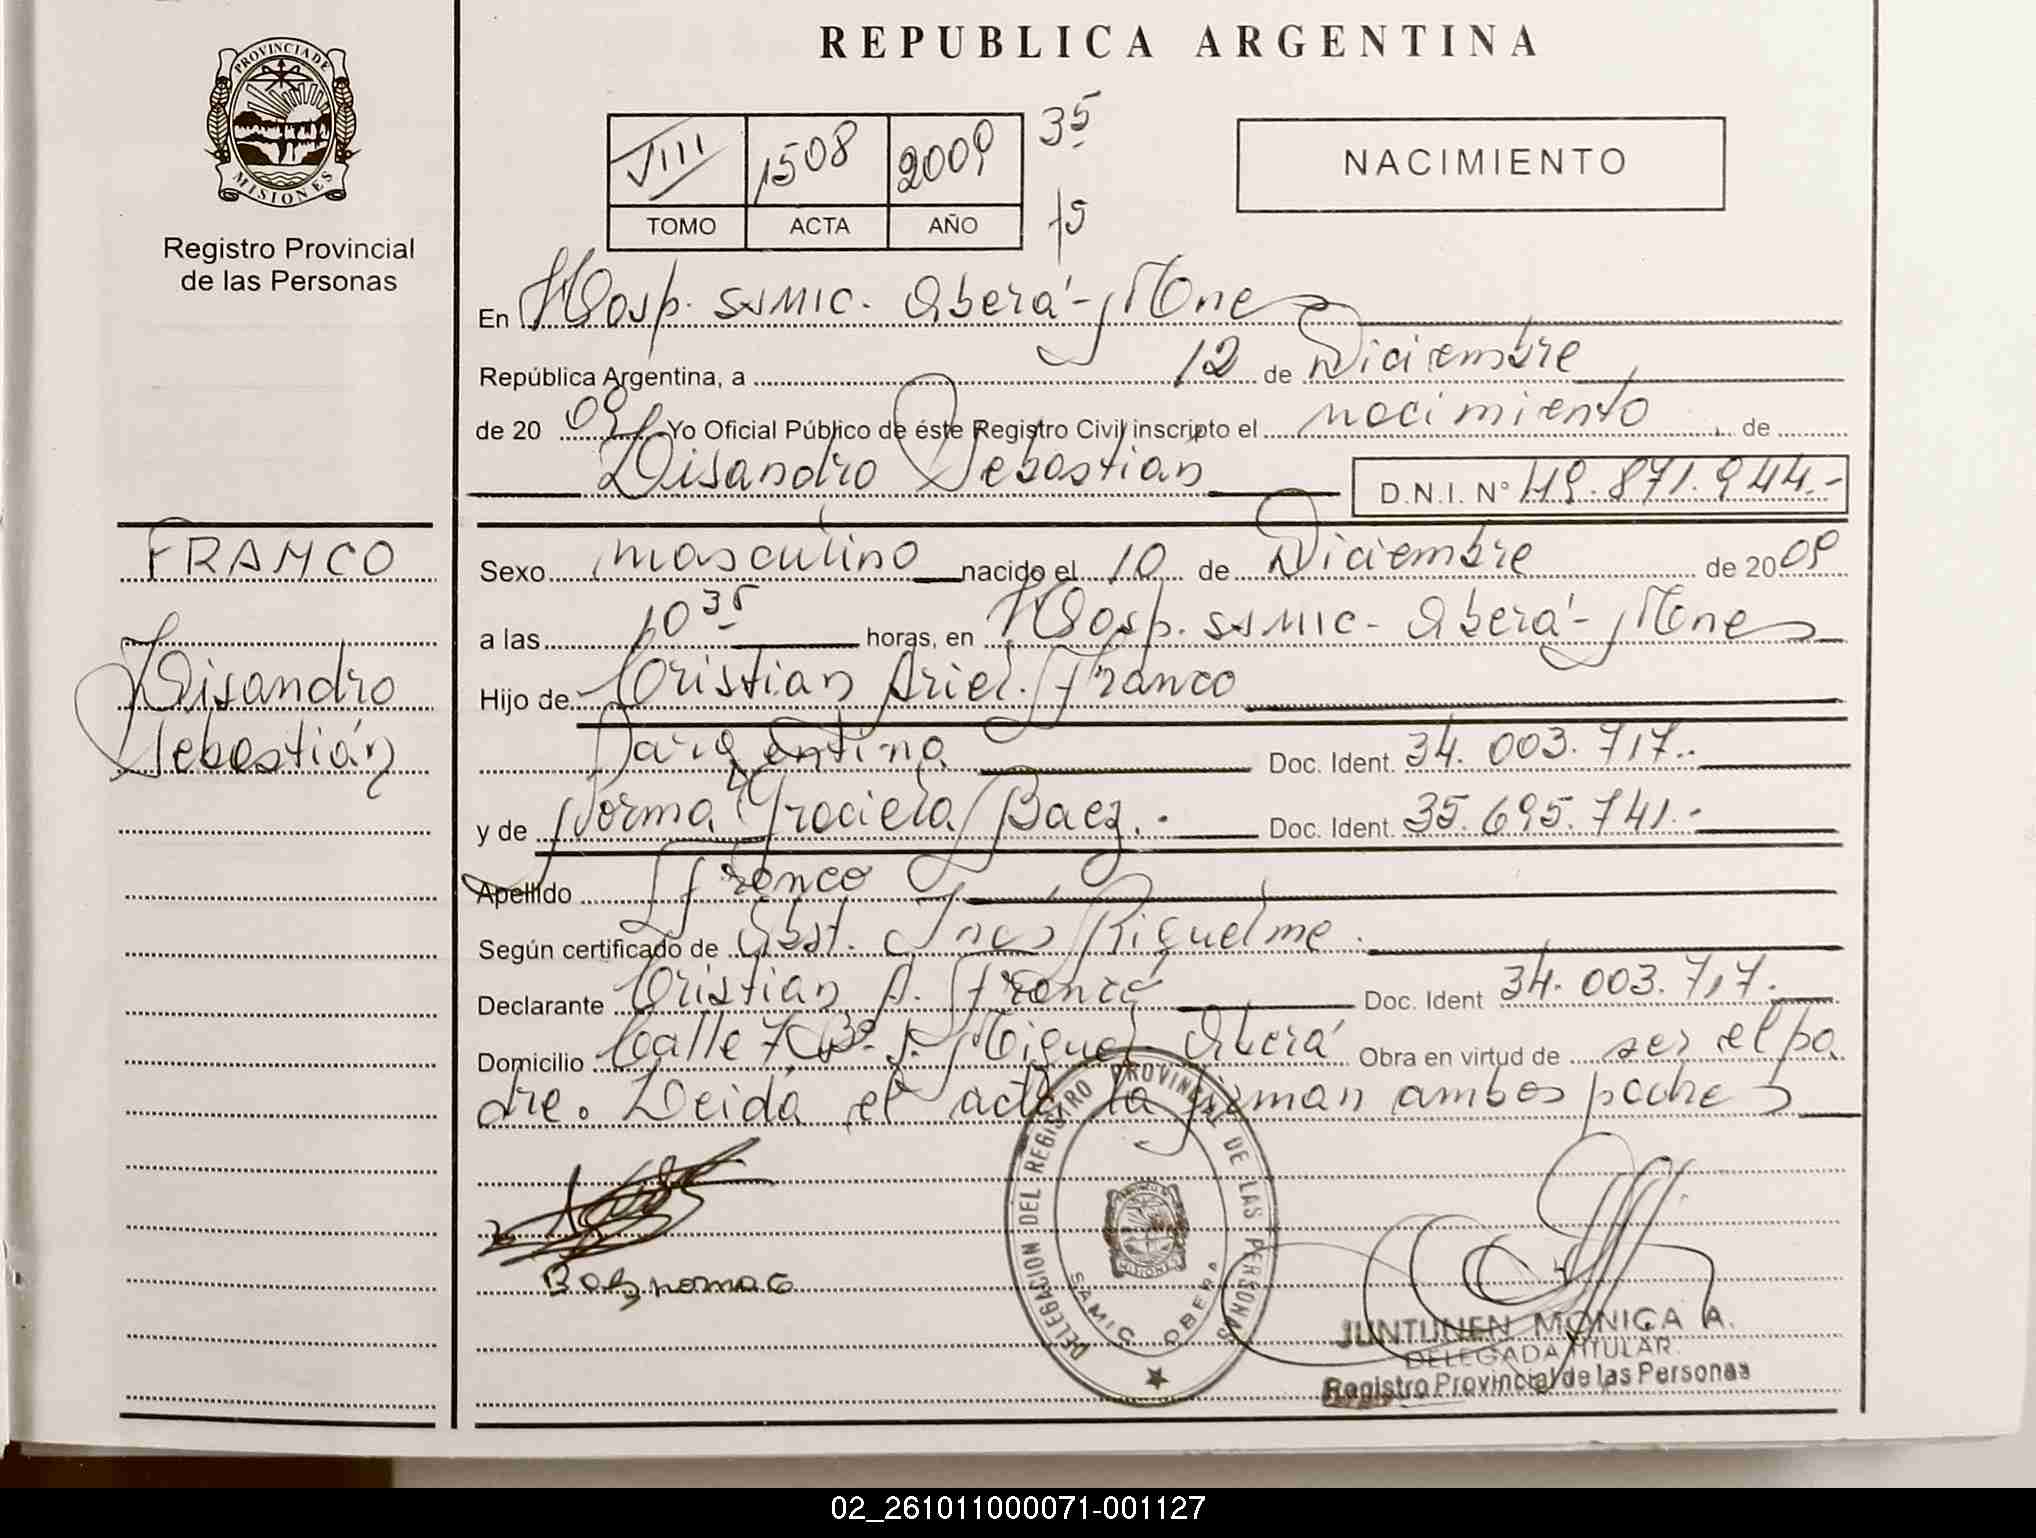 REPUBLICA ARGENTINA
PROVINCIA DE
MISIONES
Registro Provincial
de las Personas
VIII 1508 2009 35
TOMO ACTA AÑO 15
NACIMIENTO
En Hosp. SAMIC. Oberá - Mnes
República Argentina, a 12 de Diciembre
de 20 09 Yo Oficial Público de éste Registro Civil inscripto el nacimiento de
Lisandro Sebastián D.N.I. Nº 49.871.944.-
FRANCO
Lisandro
Sebastián
Sexo masculino nacido el 10 de Diciembre de 2009
a las 10 35 horas, en Hosp. SAMIC - Oberá - Mnes
Hijo de Cristian Ariel Franco
argentina Doc. Ident. 34.003.717.-
y de Norma Graciela Baez.- Doc. Ident. 35.695.741.-
Apellido Franco
Según certificado de Obst. Ines Riquelme.
Declarante Cristian A. Franco Doc. Ident 34.003.717.
Domicilio Calle 7 Bº S. Miguel Oberá Obra en virtud de ser el pa
dre. Leida el acta la firman ambos padres
Baez norma G
DELEGACION DEL REGISTRO PROVINCIAL DE LAS PERSONAS
SAMIC OBERA
JUNTUNEN MONICA A.
DELEGADA TITULAR
Registro Provincial de las Personas
02_261011000071-001127